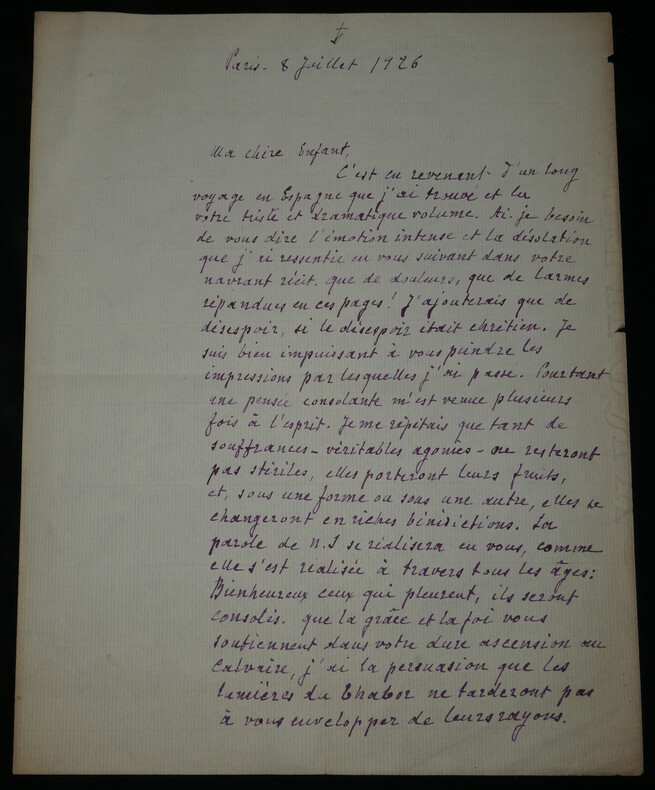 Paris - 8 Juillet 1926
Ma chère Enfant,
C'est en revenant d'un long
voyage en Espagne que j'ai trouvé et lu
votre triste et dramatique volume. Ai-je besoin
de vous dire l'émotion intense et la désolation
que j'ai ressentie en vous suivant dans votre
navrant récit. que de douleurs, que de larmes
répandues en ces pages! J'ajouterais que de
désespoir, si le désespoir était chrétien. Je
suis bien impuissant à vous peindre les
impressions par lesquelles j'ai passé. Pourtant
une pensée consolante m'est venue plusieurs
fois à l'esprit. Je me répétais que tant de
souffrances - véritables agonies - ne resteront
pas stériles, elles porteront leurs fruits,
et, sous une forme ou sous une autre, elles se
changeront en riches bénédictions. La
parole de N.S se réalisera en vous, comme
elle s'est réalisée à travers tous les âges:
Bienheureux ceux qui pleurent, ils seront
consolés. que la grâce et la foi vous
soutiennent dans votre dure ascension au
Calvaire, j'ai la persuasion que les
lumières du Thabor ne tarderont pas
à vous envelopper de leurs rayons.